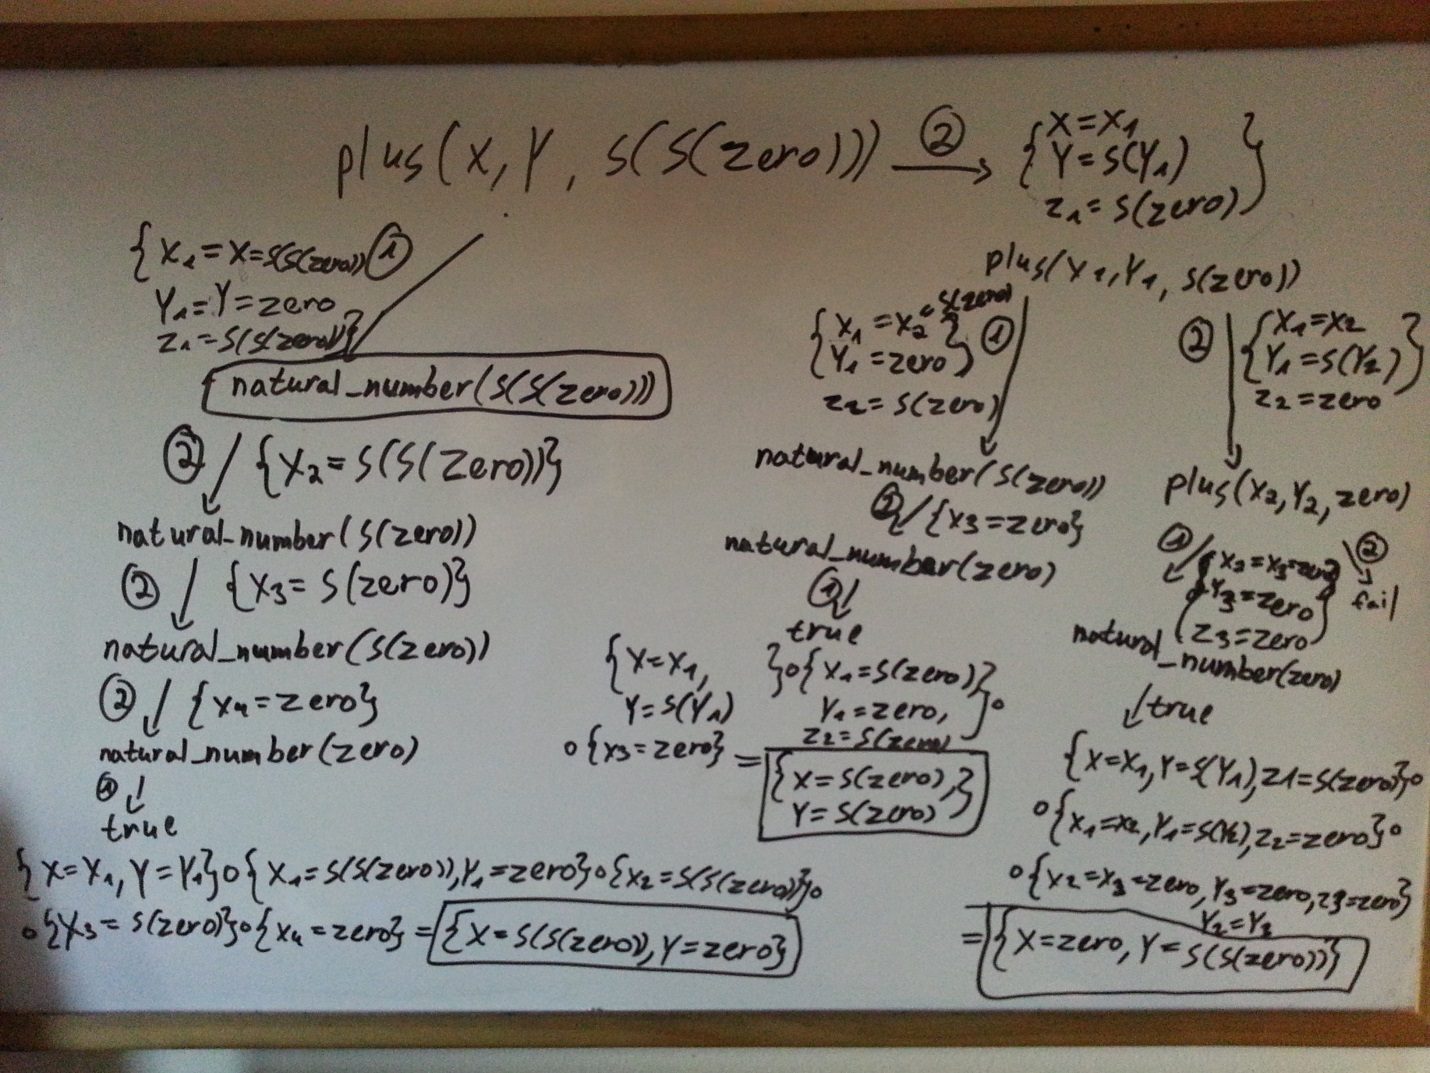 plus(X, Y, s(s(zero))) ② → { X=X1
Y=s(Y1)
z1=s(zero) }
{ X1=X=s(s(zero)) ①
Y1=Y=zero
z1=s(s(zero)) }
natural_number(s(s(zero)))
② {X2=s(s(zero))}
natural_number(s(zero))
② {X3=s(zero)}
natural_number(s(zero))
② {X4=zero}
natural_number(zero)
① 
true
{X=X1, Y=Y1}o{X1=s(s(zero)),Y1=zero}o{X2=s(s(zero))}o
o{X3=s(zero)}o{X4=zero}= {X=s(s(zero)), Y=zero}
plus(X1,Y1, s(zero))
{ X1=X2=s(zero)
Y1=zero } ①
z2=s(zero)
natural_number(s(zero))
② {X3=zero}
natural_number(zero)
①
true
{X=X1, }o{X1=s(zero)}
Y=s(Y1) Y1=zero, }o
z2=s(zero)
o{X3=zero} = {X=s(zero),}
Y=s(zero)
② { X1=X2
Y1=s(Y2) }
z2=zero
plus(X2,Y2,zero)
① { X2=X3=zero ②
Y3=zero } fail
z3=zero
natural_number(zero)
true
{X=X1,Y=s(Y1),z1=s(zero)}o
o{X1=X2,Y1=s(Y2),z2=zero}o
o{X2=X3=zero,Y3=zero,z3=zero}
Y2=Y3
= {X=zero, Y=s(s(zero))}